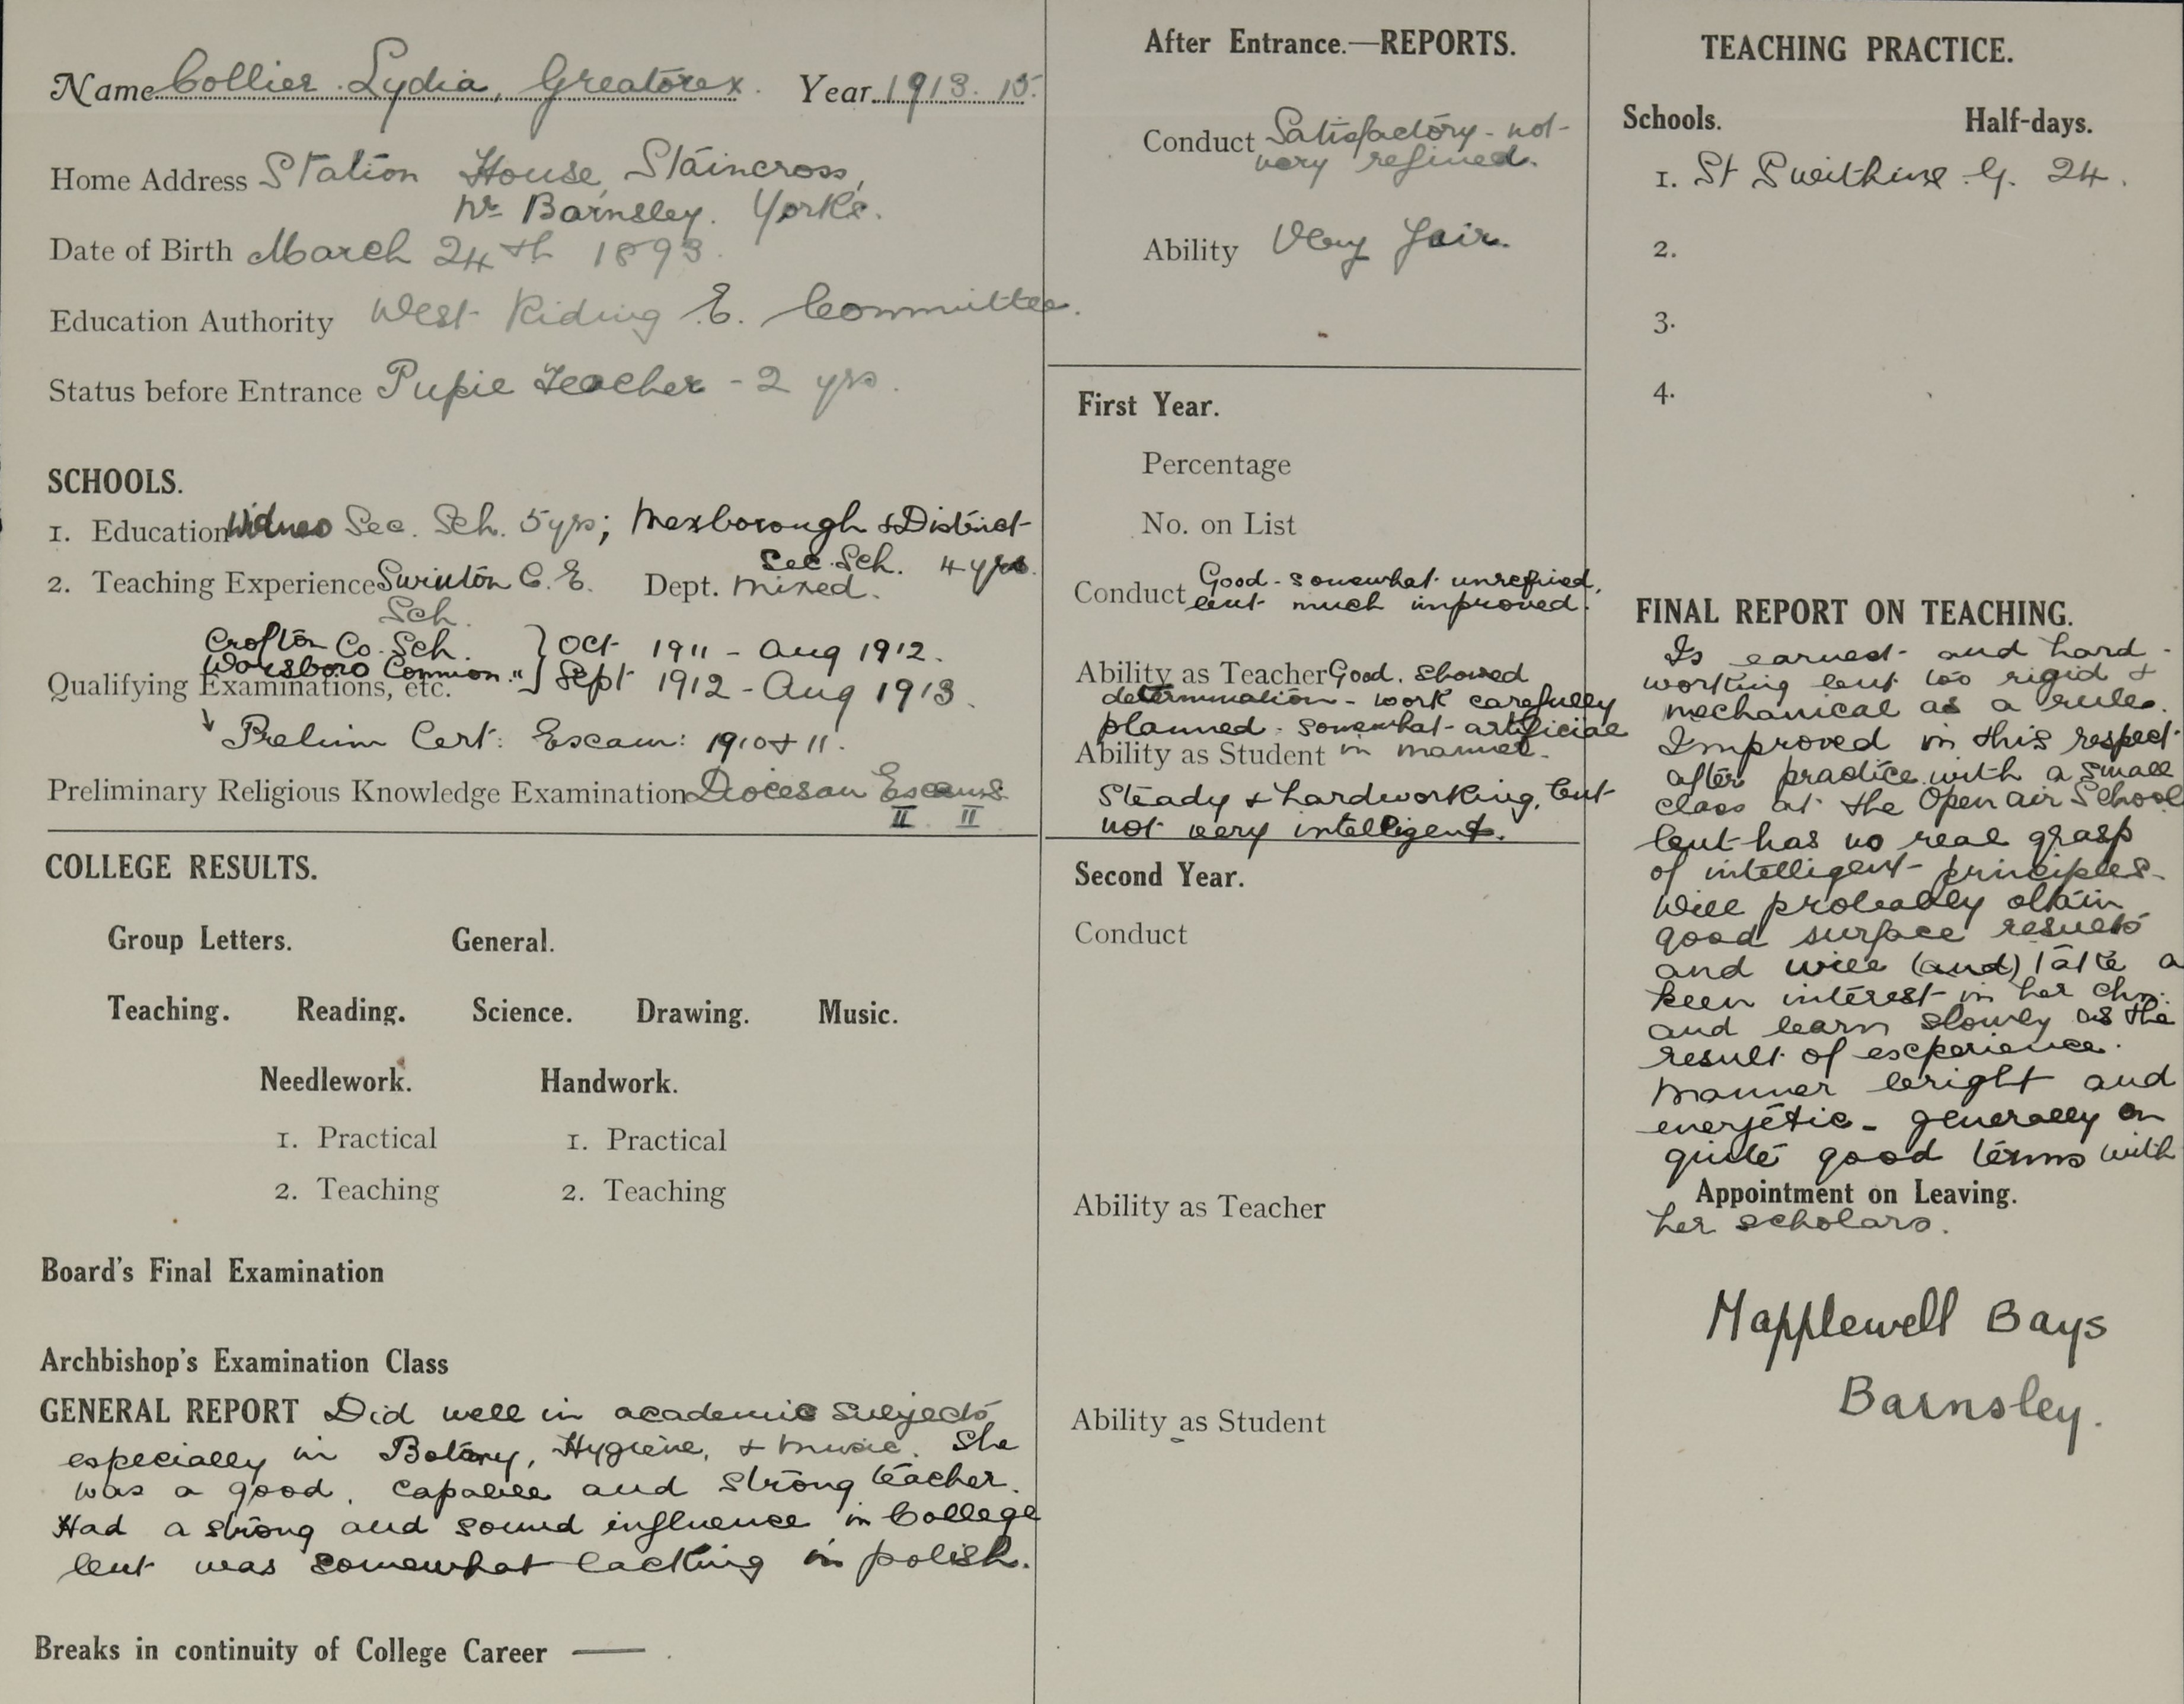 Name Collier Lydia, Greatorex. Year 1913. 15.
Home Address Station House, Staincross,
Nr Barnsley. Yorks.
Date of Birth March 24th 1893.
Education Authority West Riding E. Committee.
Status before Entrance Pupil Teacher - 2 yrs.
SCHOOLS.
1. Education Widnes Sec. Sch. 5 yrs; Mexborough & District
Sec. Sch. 4 yrs.
2. Teaching Experience Swinton C. E. Dept. Mixed.
Sch.
Crofton Co. Sch. } Oct 1911 - Aug 1912.
Worsboro Common " } Sept 1912 - Aug 1913.
Qualifying Examinations, etc.
Prelim Cert: Exam: 1910 & 11.
Preliminary Religious Knowledge Examination Diocesan Exams
II. II
COLLEGE RESULTS.
Group Letters. General.
Teaching. Reading. Science. Drawing. Music.
Needlework. Handwork.
1. Practical 1. Practical
2. Teaching 2. Teaching
Board's Final Examination
Archbishop's Examination Class
GENERAL REPORT Did well in academic subjects
especially in Botany, Hygiene, & Music. She
was a good, capable and strong teacher.
Had a strong and sound influence in College
but was somewhat lacking in polish.
Breaks in continuity of College Career —
After Entrance.—REPORTS.
Conduct Satisfactory - not
very refined.
Ability Very fair.
First Year.
Percentage
No. on List
Conduct Good - somewhat unrefined,
but much improved.
Ability as Teacher Good. Showed
determination - work carefully
planned - somewhat artificial
Ability as Student in manner.
Steady & hardworking, but
not very intelligent.
Second Year.
Conduct
Ability as Teacher
Ability as Student
TEACHING PRACTICE.
Schools. Half-days.
1. St Swithins G. 24.
2.
3.
4.
FINAL REPORT ON TEACHING.
Is earnest and hard-
working but too rigid &
mechanical as a rule.
Improved in this respect
after practice with a small
class at the Open air School
but has no real grasp
of intelligent principles.
Will probably obtain
good surface results
and will (and) take a
keen interest in her chn.
and learn slowly as the
result of experience.
Manner bright and
energetic - generally on
quite good terms with
Appointment on Leaving.
her scholars.
Mapplewell Bays
Barnsley.